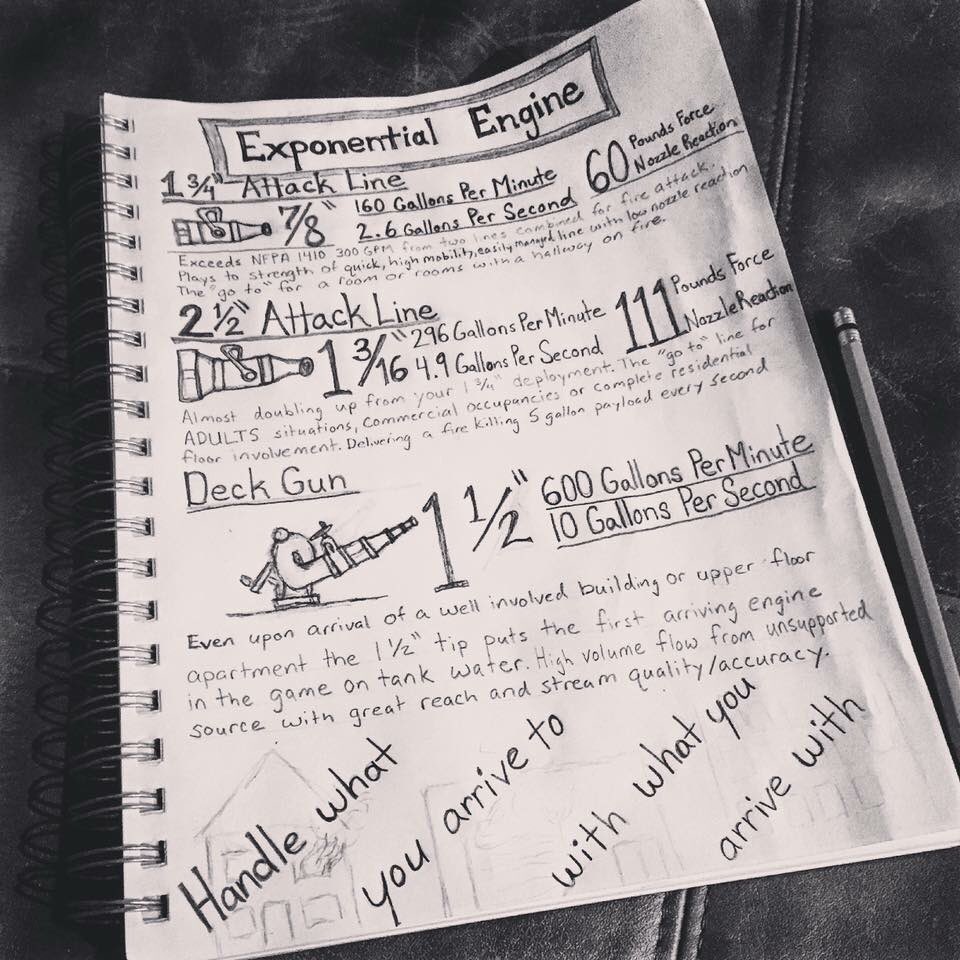 Exponential Engine
1 3/4" Attack Line
7/8"
160 Gallons Per Minute
2.6 Gallons Per Second
60 Pounds Force
Nozzle Reaction
Exceeds NFPA 1410 300 GPM from two lines combined for fire attack.
Plays to strength of quick, high mobility, easily managed line with low nozzle reaction
The "go to" for a room or rooms with a hallway on fire.
2 1/2" Attack Line
1 3/16"
296 Gallons Per Minute
4.9 Gallons Per Second
111 Pounds Force
Nozzle Reaction
Almost doubling up from your 1 3/4" deployment. The "go to" line for
ADULTS situations, Commercial occupancies or complete residential
floor involvement. Delivering a fire killing 5 gallon payload every second
Deck Gun
1 1/2"
600 Gallons Per Minute
10 Gallons Per Second
Even upon arrival of a well involved building or upper floor
apartment the 1 1/2" tip puts the first arriving engine
in the game on tank water. High volume flow from unsupported
source with great reach and stream quality/accuracy.
Handle what
you arrive to
with what you
arrive with